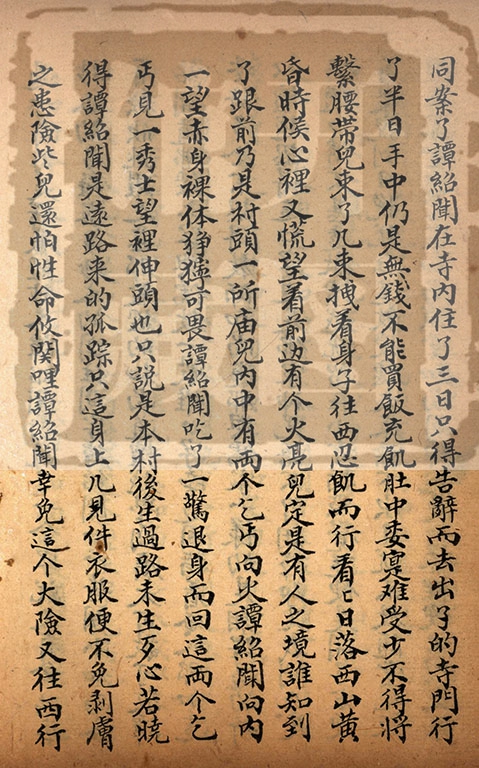 同案了譚紹聞在寺內住了三日只得告辭而去出了的寺門行
了半日手中仍是無錢不能買飯充飢肚中委寔难受少不得將
繫腰帶兒束了几束拽着身子往西忍飢而行看〻日落西山黄
昏時候心裡又慌望着前边有个火亮兒定是有人之境誰知到
了跟前乃是村頭一所庙兒內中有両个乞丐向火譚紹聞向内
一望赤身裸体狰獰可畏譚紹聞吃了一驚退身而回這両个乞
丐見一秀士望裡伸頭也只說是本村後生過路未生歹心若曉
得譚紹聞是遠路来的孤踪只這身上几見件衣服便不免剥膚
之患險些兒還怕性命攸関哩譚紹聞幸免這个大險又往西行